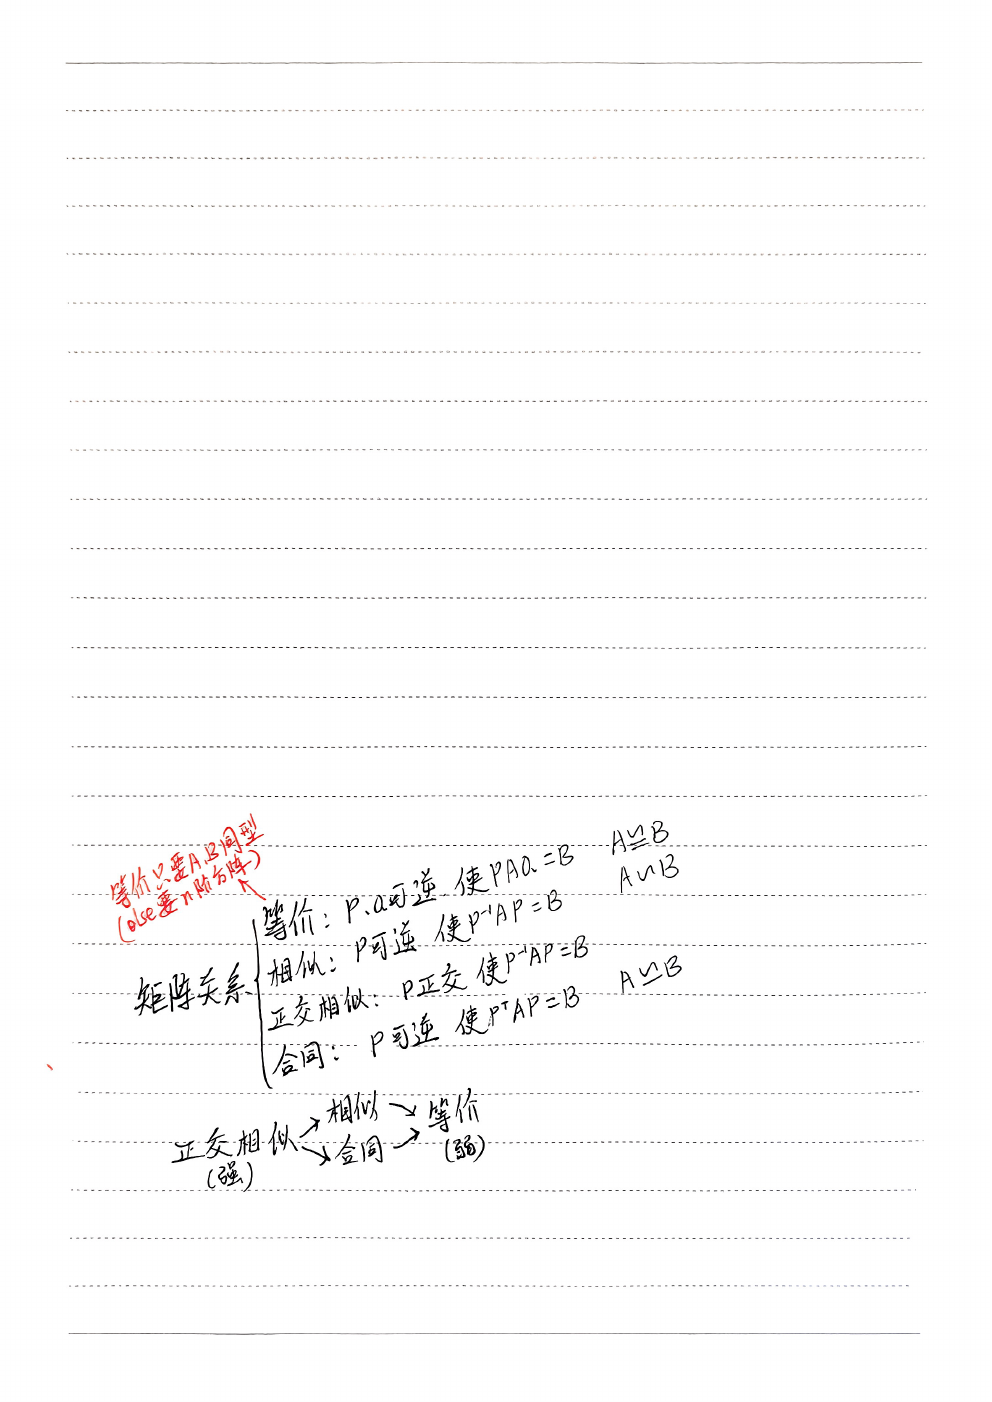 等价只要A、B同型
(else要n阶方阵)
等价: P、Q可逆, 使PAQ=B A≌B
相似: P可逆 使P⁻¹AP=B A∽B
矩阵关系
正交相似: P正交 使P⁻¹AP=B
合同: P可逆 使PᵀAP=B A≃B
正交相似 → 相似 → 等价
→ 合同 →
(强) (弱)